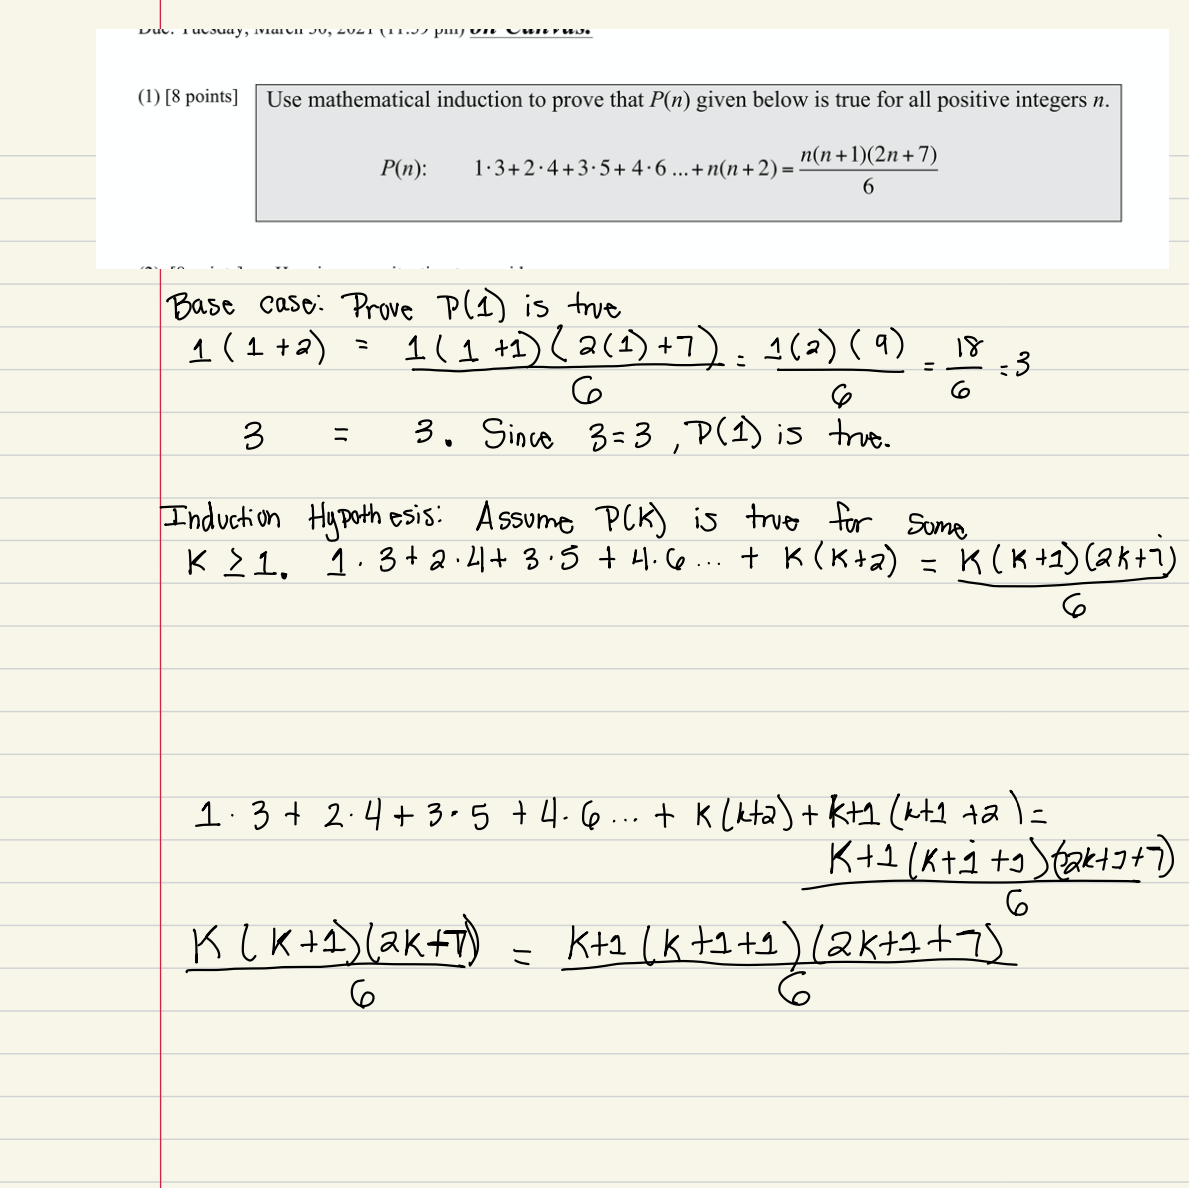 Due: Tuesday, March 30, 2021 (11:59 pm) on Canvas.
(1) [8 points] Use mathematical induction to prove that P(n) given below is true for all positive integers n.
P(n): 1·3+2·4+3·5+4·6 ...+n(n+2)= n(n+1)(2n+7)
6
Base case: Prove P(1) is true
1(1+2) = 1(1+1)(2(1)+7) = 1(2)(9) = 18 = 3
6 6 6
3 = 3. Since 3=3, P(1) is true.
Induction Hypothesis: Assume P(K) is true for some
K ≥ 1. 1·3+2·4+3·5+4·6... + K(K+2) = K(K+1)(2k+7)
6
1·3+2·4+3·5+4·6... + K(k+2)+k+1(k+1+2)=
K+1(k+1+1)(2k+1+7)
6
K(K+1)(2k+7) = K+1(k+1+1)(2k+1+7)
6 6